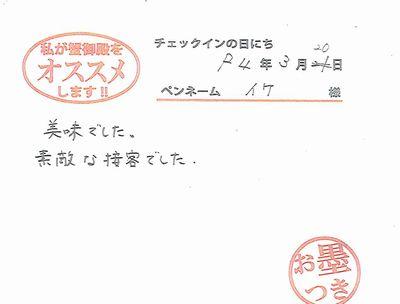 私が蟹御殿を
オススメ
します!!
チェックインの日にち
R4年3月20日
ペンネーム イケ 様
美味でした。
素敵な接客でした.
お墨
つき